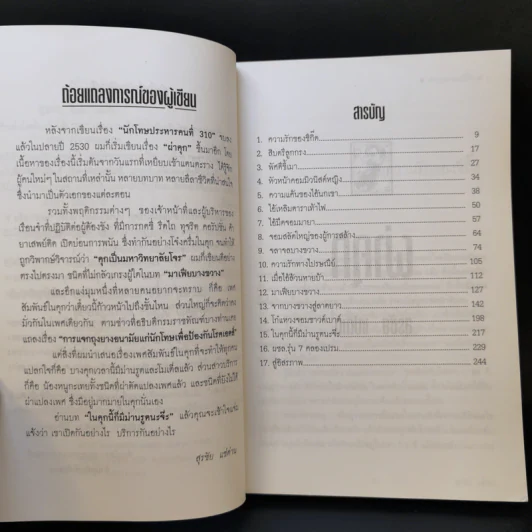 ถ้อยแถลงการณ์ของผู้เขียน
หลังจากเขียนเรื่อง "นักโทษประหารคนที่ 310" จบลง
แล้วในปลายปี 2530 ผมก็เริ่มเขียนเรื่อง "ผ่าคุก" ขึ้นมาอีก โดย
เนื้อหาของเรื่องนี้เริ่มต้นจากวันแรกที่เหยียบเข้าแดนตะราง ได้รู้จัก
ผู้คนใหม่ๆ ในสถานที่เหล่านั้น หลายบทบาท หลายลีลาชีวิตที่น่าสนใจ
ซึ่งนำมาเป็นตัวเอกของแต่ละตอน
รวมทั้งพฤติกรรมต่างๆ ของเจ้าหน้าที่และผู้บริหารของ
เรือนจำที่ปฏิบัติต่อผู้ต้องขัง ที่มีการกดขี่ รีดไถ ทุจริต คอรัปชั่น ค้า
ยาเสพย์ติด เปิดบ่อนการพนัน ซึ่งทำกันอย่างโจ่งครึ่มในคุก จนทำให้
ถูกวิพากษ์วิจารณ์ว่า "คุกเป็นมหาวิทยาลัยโจร" ผมก็เขียนอย่าง
ตรงไปตรงมา ชนิดที่ไม่กลัวเกรงผู้ใดในบท "มาเฟียบางขวาง"
และอีกแง่มุมหนึ่งที่หลายคนอยากจะทราบ ก็คือ เพศ
สัมพันธ์ในคุกว่าเดี๋ยวนี้ก้าวหน้าไปถึงขั้นไหน ส่วนใหญ่ก็จะคิดว่า
มั่วกันในเพศเดียวกัน ตามข่าวที่อธิบดีกรมราชทัณฑ์บางท่าน
แถลงเรื่อง "การแจกถุงยางอนามัยแก่นักโทษเพื่อป้องกันโรคเอดส์"
แต่สิ่งที่ผมนำเสนอเรื่องเพศสัมพันธ์ในคุกที่จะทำให้ทุกคน
แปลกใจก็คือ บางคุกเวลานี้มีม่านรูดและโมเต็ลแล้ว ส่วนสาวบริการ
ก็คือ น้องหนูกะเทยทั้งชนิดที่ผ่าตัดแปลงเพศแล้ว และชนิดที่ยังไม่ได้
ผ่าแปลงเพศ ซึ่งมีอยู่มากมายในคุกนั่นเอง
อ่านบท "ในคุกนี้ก็มีม่านรูดนะจ๊ะ" แล้วคุณจะเข้าใจแจ่ม
แจ้งว่า เขาเปิดกันอย่างไร บริการกันอย่างไร
สุรชัย
สารบัญ
1. ความรักของซีกิ๊ด 9
2. สิบตรีลูกกรง 17
3. พัศดีขี้เมา 27
4. หัวหน้าคอมมิวนิสต์หญิง 34
5. ความแค้นของไอ้นกเขา 38
6. ไอ้เหลิมดาราเท้าไฟ 47
7. ไอ้มืดจอมมายา 57
8. จอมสลัดใหญ่ของผู้การสล้าง 64
9. จลาจลบางขวาง 74
10. ความรักทางไปรษณีย์ 105
11. เมื่อไอ้ส้วมหายบ้า 107
12. มาเฟียบางขวาง 112
13. จากบางขวางสู่ลาดยาว 142
14. โก้แดงวงจอมชาวด์เบาท์ 198
15. ในคุกนี้ก็มีม่านรูดนะจ๊ะ 217
16. ผชล.รุ่น 7 คลองเปรม 229
17. สู่อิสรภาพ 244